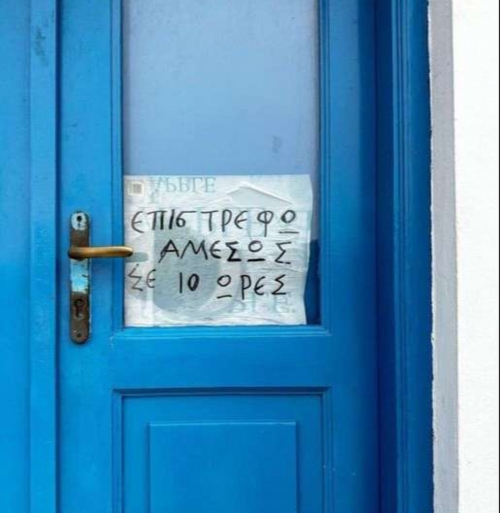 ΕΠΙΣΤΡΕΦΩ
ΑΜΕΣΩΣ
ΣΕ 10 ΩΡΕΣ